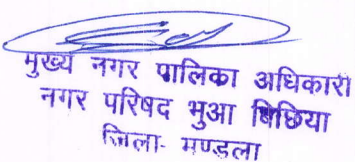 मुख्य नगर पालिका अधिकारी
नगर परिषद भुआ बिछिया
जिला- मण्डला